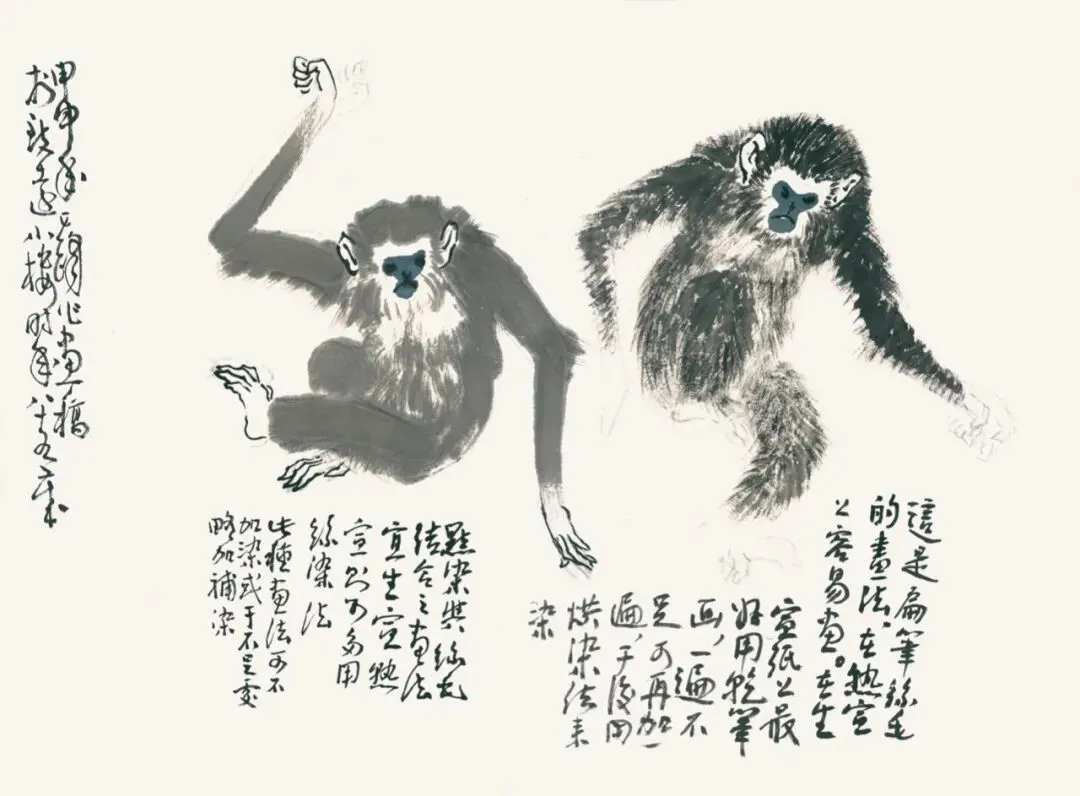 這是扁筆絲毛
的畫法,在熟宣
上容易畫。在生
宣紙上最
好用乾筆
画,一遍不
足可再加一
遍,干後用
烘染法来
染
點染與絲毛
结合之画法
宜生宣熟
宣则可多用
絲染法
此種画法可不
加染或于不足處
略加補染
甲申年作畫稿
遠小樓時年八十九歲